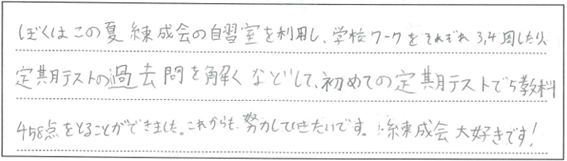 ぼくはこの夏練成会の自習室を利用し、学校ワークをそれぞれ3,4周したり、
定期テストの過去問を解くなどして、初めての定期テストで5教科
458点をとることができました。これからも努力していきたいです。練成会大好きです!